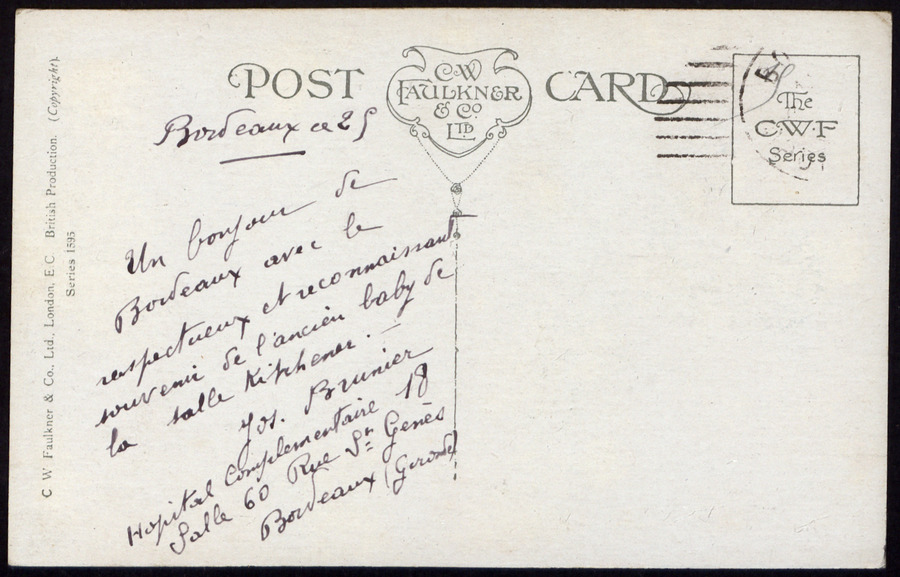 POST
C.W
FAULKNER
& Co
LTD
CARD
The
C.W.F
Series
C W Faulkner & Co., Ltd., London, E.C British Production. (Copyright).
Series 1595
Bordeaux ce 25
Un bonjour de
Bordeaux avec le
respectueux et reconnaissant
souvenir de l'ancien baby de
la salle Kitchener. —
Jos. Brunier
Hopital Complementaire 18
Salle 60 Rue St Genès
Bordeaux (Gironde)